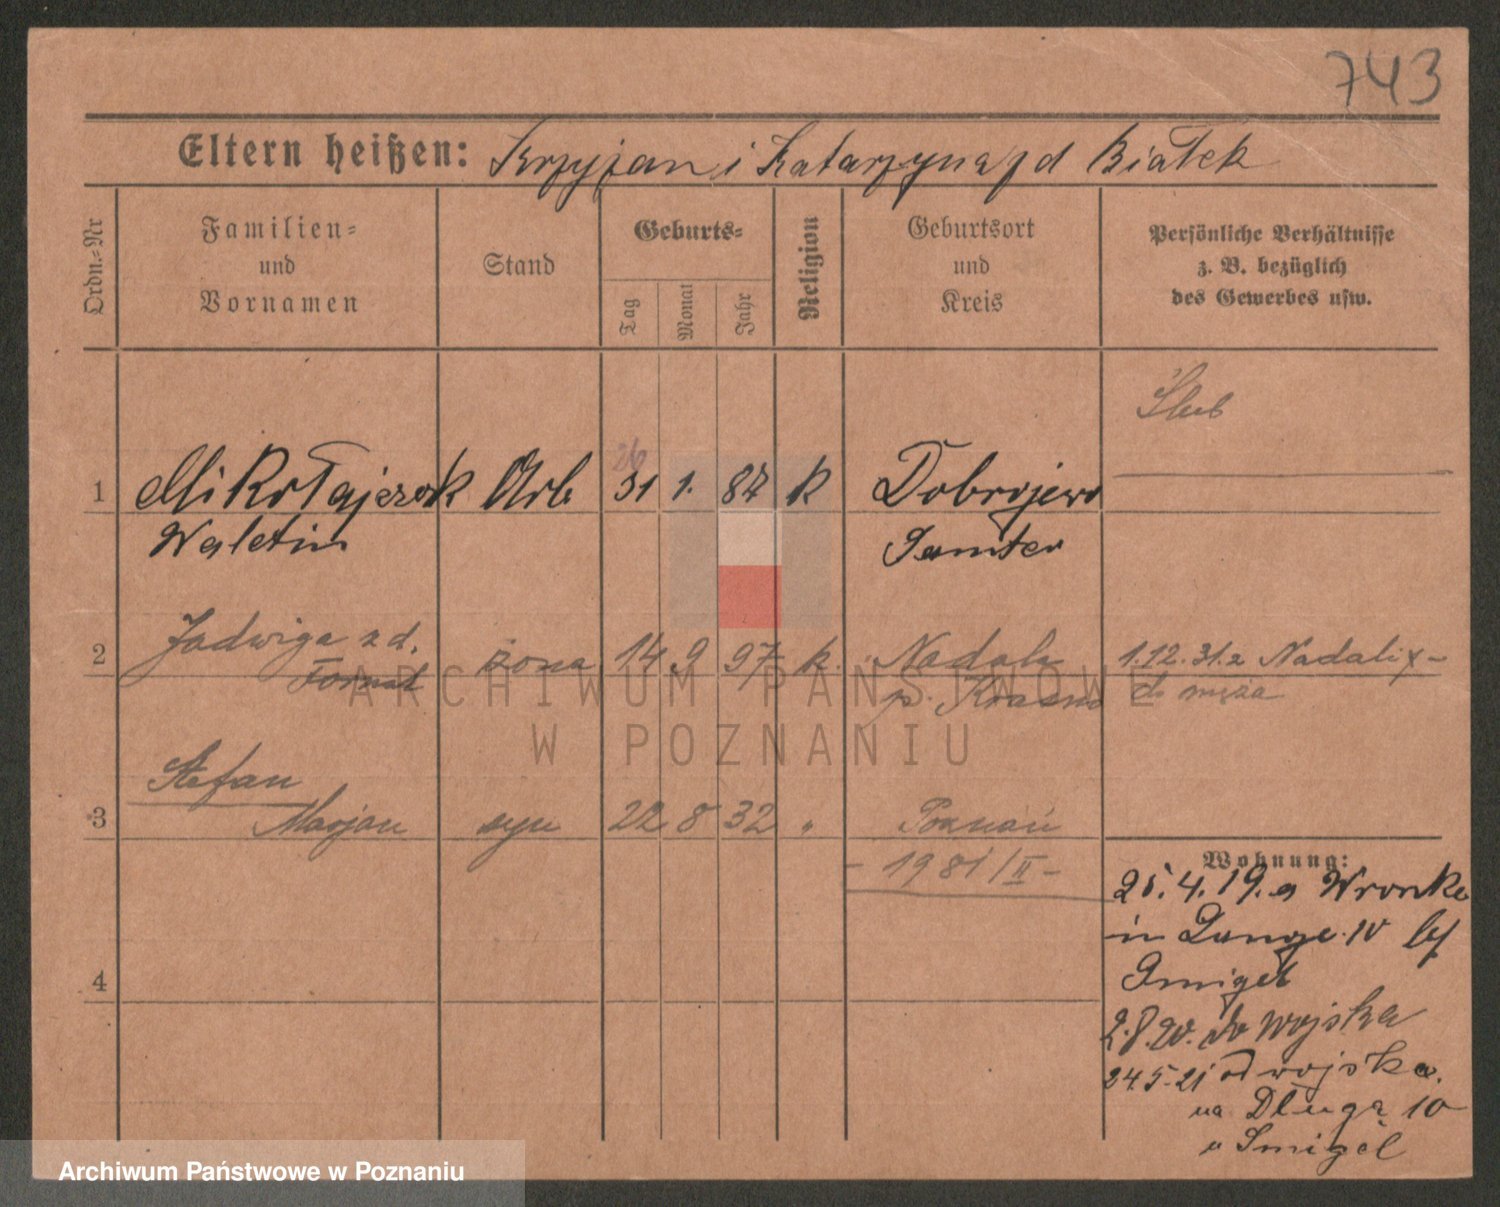 743
Eltern heißen: Krzyżan i Katarzyna z d Białek
Ordn.-Nr
Familien-
und
Vornamen
Stand
Geburts-
Tag
Monat
Jahr
Religion
Geburtsort
und
Kreis
Persönliche Verhältnisse
z. B. bezüglich
des Gewerbes usw.
Ślub
26
1 Mikołajczak Arb 31 1. 87 k Dobrojewo
Waletin Samter
2 Jadwiga z d. żona 14 9 97 k. Nadoln 1.12.31. z
Formal p. do męża
Stefan
3 Marjan syn 22 8 32 " Poznań
- 1981/II -
Wohnung:
25.4.19. a Wronke
in Lange 10 bf
Smigel
4
2.8.20. do wojska
24.5.21 od wojska.
na Długa 10
u Smigel
ARCHIWUM PAŃSTWOWE
W POZNANIU
Archiwum Państwowe w Poznaniu